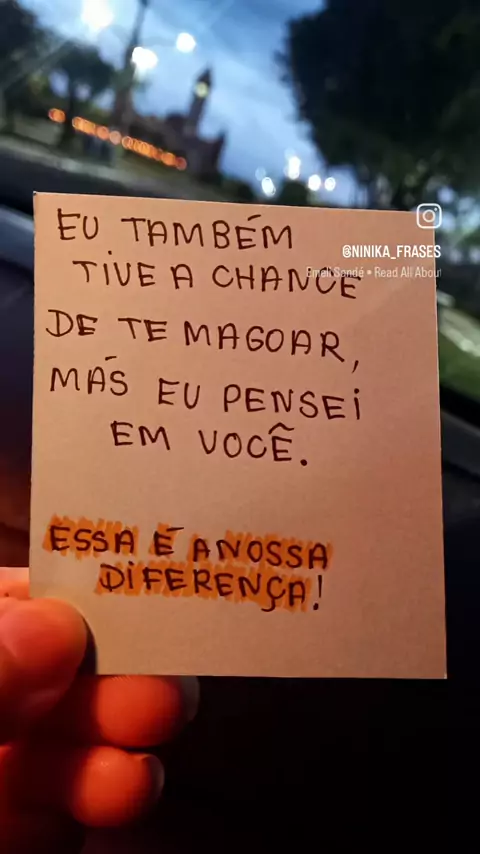 @NINIKA_FRASES
Emeli Sandé • Read All Abou
EU TAMBÉM
TIVE A CHANCE
DE TE MAGOAR,
MÁS EU PENSEI
EM VOCÊ.
ESSA É A NOSSA
DIFERENÇA!